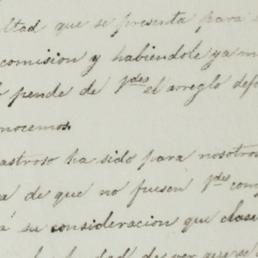 ultad que se presenta para
comision y habiendole ya
pende de Vdes el arreglo def
nocemos.
astroso ha sido para nosotros
a de que no fuesen Vdes com
a' su consideracion que clase
dad de ver que se